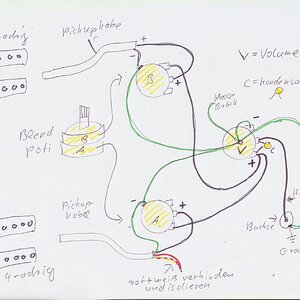 4-adrig
pickupkabel
+
V = Volume
C = Kondensa
B
+
Masse
Brück
-
Blend
poti
B
A
V
C
+
-
pickup
kabel
A
+
Buchse
Gro
4-adrig
rot+weiß verbinden
und isolieren